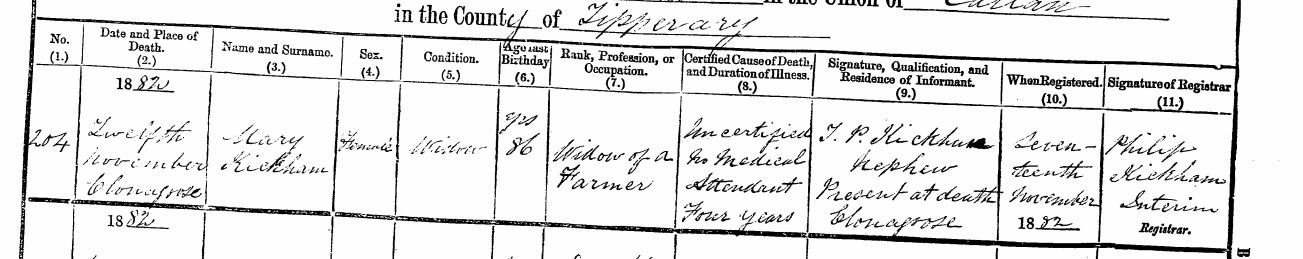 in the Union of Callan
in the County of Tipperary
No. (1.)
Date and Place of Death. (2.)
Name and Surname. (3.)
Sex. (4.)
Condition. (5.)
Age last Birthday (6.)
Rank, Profession, or Occupation. (7.)
Certified Cause of Death, and Duration of Illness. (8.)
Signature, Qualification, and Residence of Informant. (9.)
When Registered. (10.)
Signature of Registrar (11.)
204
1882
Twelfth
November
Clonagoose
Mary
Kickham
Female
Widow
yrs
86
Widow of a
Farmer
Uncertified
No Medical
Attendant
Four years
T. P. Kickham
Nephew
Present at death
Clonagoose
Seven-
teenth
November
1882
Philip
Kickham
Interim
Registrar.
1882